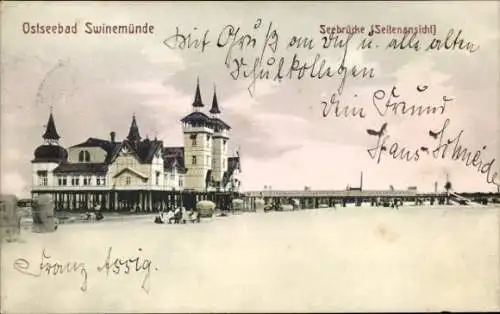 Ostseebad Swinemünde
Seebrücke (Seitenansicht)
Mit Gruß an Dich u. alle alten
Schulkollegen
Dein Freund
Hans Schneide
Franz Assig.